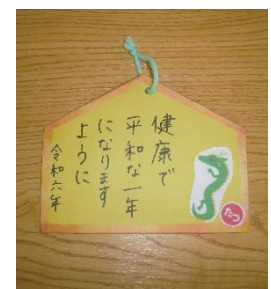 健康で
平和な一年
になります
ように
令和六年
たつ